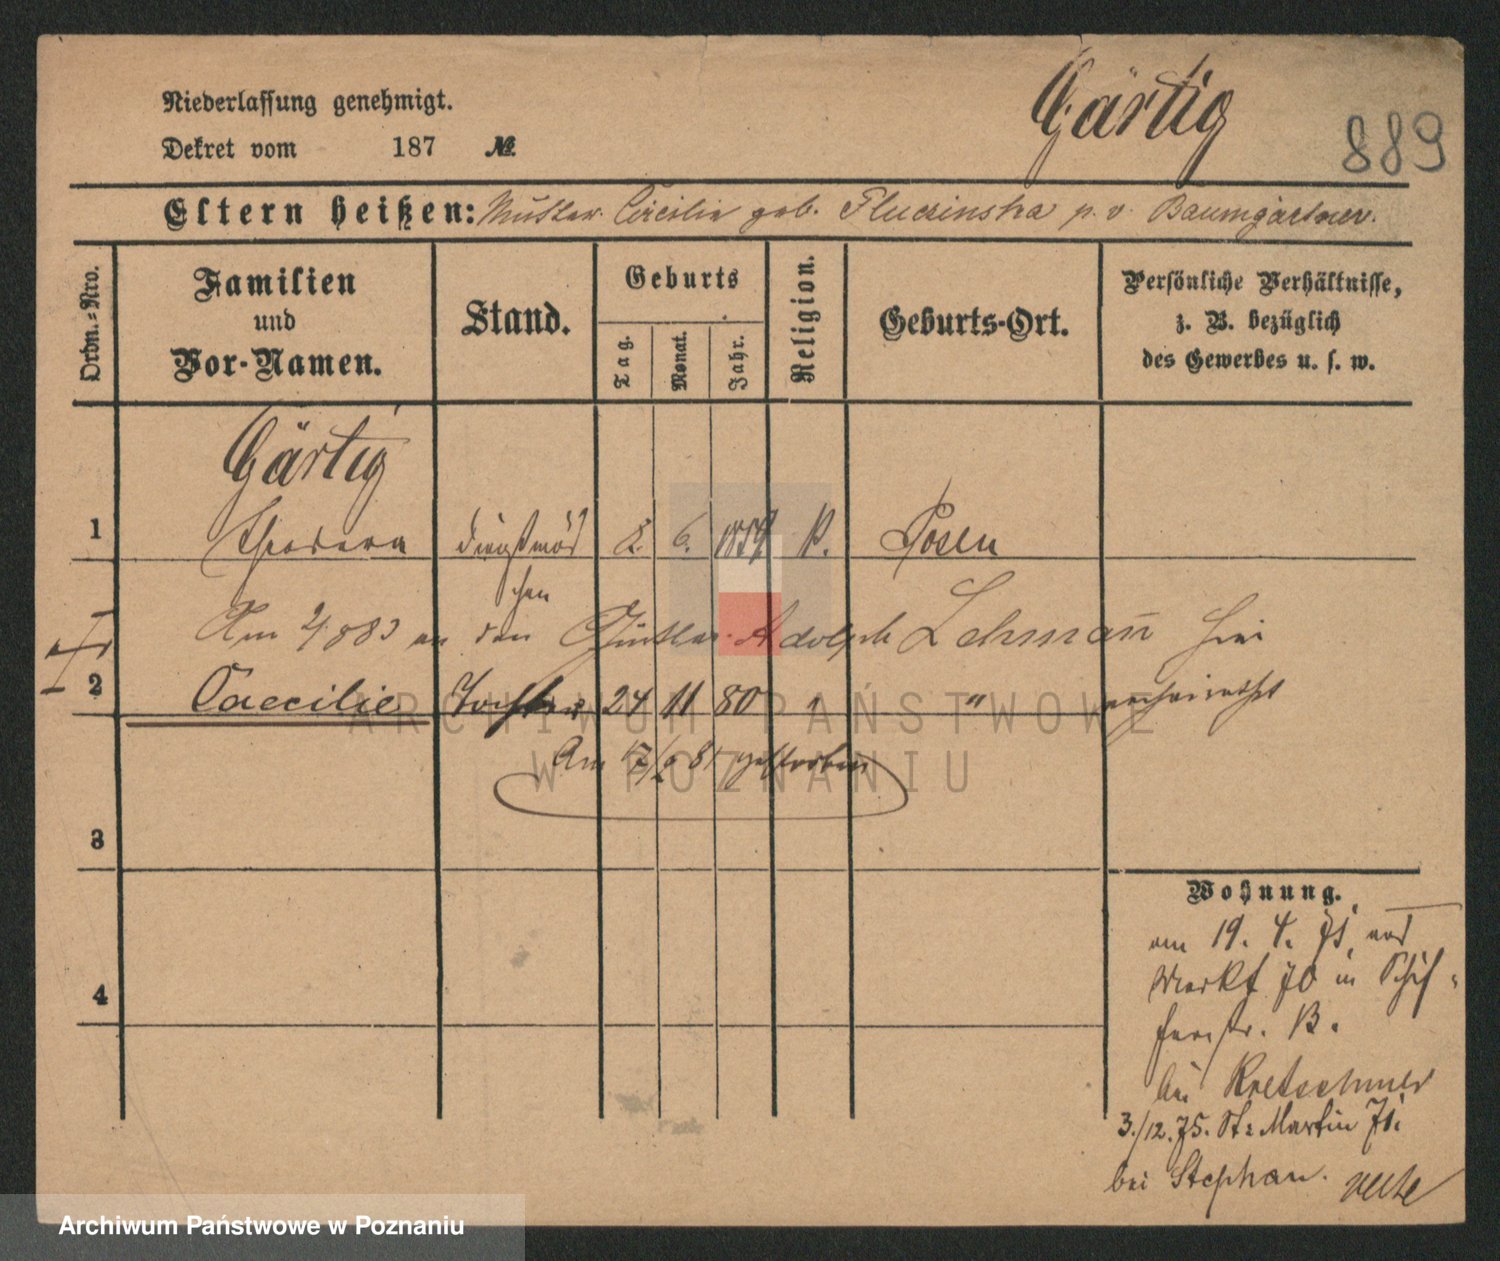 Gärtig
889
Niederlassung genehmigt.
Dekret vom 187 №
Eltern heißen: Mutter Cäcilie geb. Fluczinska p. v. Baumgartner.
Ordn.-Nro.
Familien
und
Vor-Namen.
Stand.
Geburts
Tag.
Monat.
Jahr.
Religion.
Geburts-Ort.
Persönliche Verhältnisse,
z. B. bezüglich
des Gewerbes u. s. w.
Gärtig
1 Theodora Dienstmäd 6. P. Posen
chen
Am an den Adolph Lehmañ hier
2 Caecilie Tochter 24 11 80 " " verheirathet
Am gestorben
3
4
Wohnung.
am 19. 4. 75 von
Markt 70 in Schif-
ferstr. B.
bei Kretschmer
3./12.75. St. Martin 71.
bei Stephan. verte
ARCHIWUM PAŃSTWOWE
W POZNANIU
Archiwum Państwowe w Poznaniu